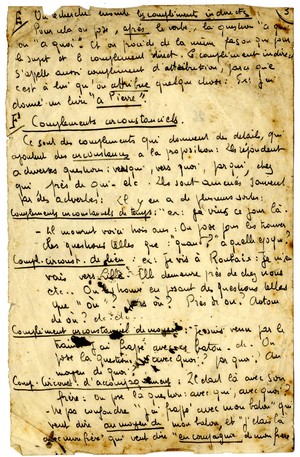 E/ On cherche ensuite les compléments indirects 3
Pour cela on pose, après le verbe, la question "à qui"
ou "à quoi". Et on procède de la même façon que pour
le sujet et le complément direct. Le complément indirect
s'appelle aussi complément d'attribution, parce que
c'est à lui qu'on attribue quelque chose. Ex: j'ai
donné un livre "à Pierre".
F/ Compléments circonstanciels.
Ce sont des compléments qui donnent des détails, qui
ajoutent des circonstances à la proposition: ils répondent
à diverses questions: , vers quoi, par qui, chez
qui, près de qui - etc. Ils sont amenés souvent
par des adverbes. Il y en a de plusieurs sortes:
Compléments circonstanciels de temps: ex: je vins ce jour là
- Il mourut voici trois ans: On pose pour les trouver
les questions telles que: "quand?" "à quelle époque?"
Compl. circonst. de lieu: ex: Je vis à Roubaix: je m'en
vais vers Lille. Elle demeure près de chez nous
etc.. On les trouve en posant des questions telles
que "où? vers où? Près de où? Autour
de où? etc.
Complément circonstanciel de moyen: Je suis venu par le
train, j'ai frappé avec un bâton - etc. On
pose la question avec quoi? par quoi? au
moyen de quoi?
Comp. circonst. d'accompagnement: Il était là avec son
frère: On pose la question: avec qui, avec quoi.
Ne pas confondre "j'ai frappé avec mon bâton" qui
veut dire au moyen de mon bâton, et "j'étais là
avec mon frère" qui veut dire "en compagnie de mon frère